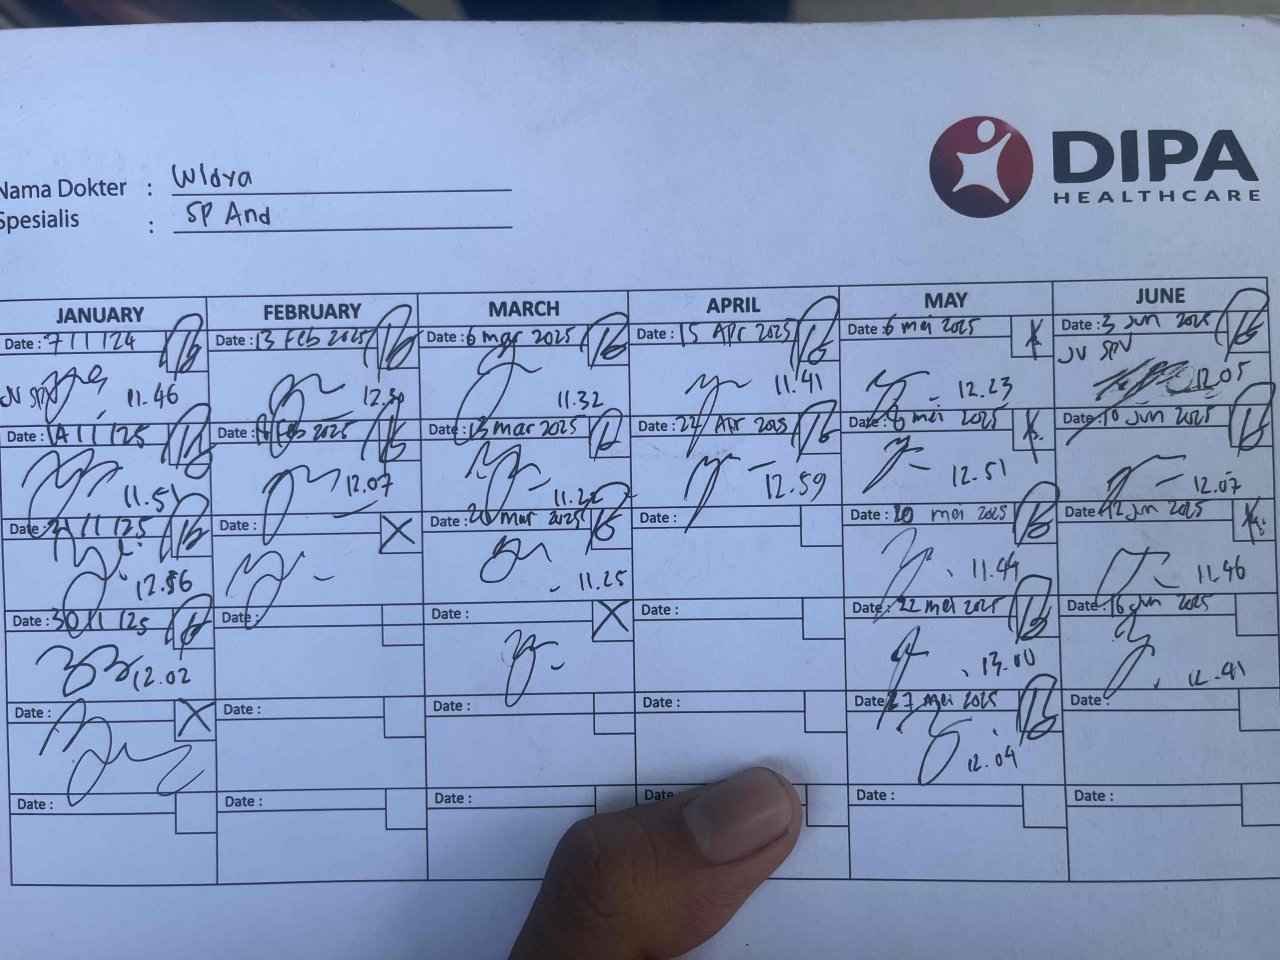 DIPA
HEALTHCARE
Nama Dokter : Widya
Spesialis : SP And
JANUARY FEBRUARY MARCH APRIL MAY JUNE
Date : 7/1/24 Date : 13 Feb 2025 Date : 6 mar 2025 Date : 15 Apr 2025 Date : 6 mei 2025 Date : 3 Jun 2025
JV SPV 11.46 11.32 11.41 12.23 JV SPV 12.05
Date : 14/1/25 Date : Feb 2025 Date : 13 mar 2025 Date : 22 Apr 2025 Date : mei 2025 Date : 10 Jun 2025
11.51 12.07 12.59 12.51 12.07
Date : 21/1/25 Date : Date : mar 2025 Date : Date : 20 mei 2025 Date : 12 Jun 2025
12.56 11.25 11.44 11.46
Date : 30/1/25 Date : Date : Date : Date : 22 mei 2025 Date : 16 Jun 2025
12.02 13.00 12.41
Date : Date : Date : Date : Date : 27 mei 2025 Date :
12.04
Date : Date : Date : Date : Date : Date :